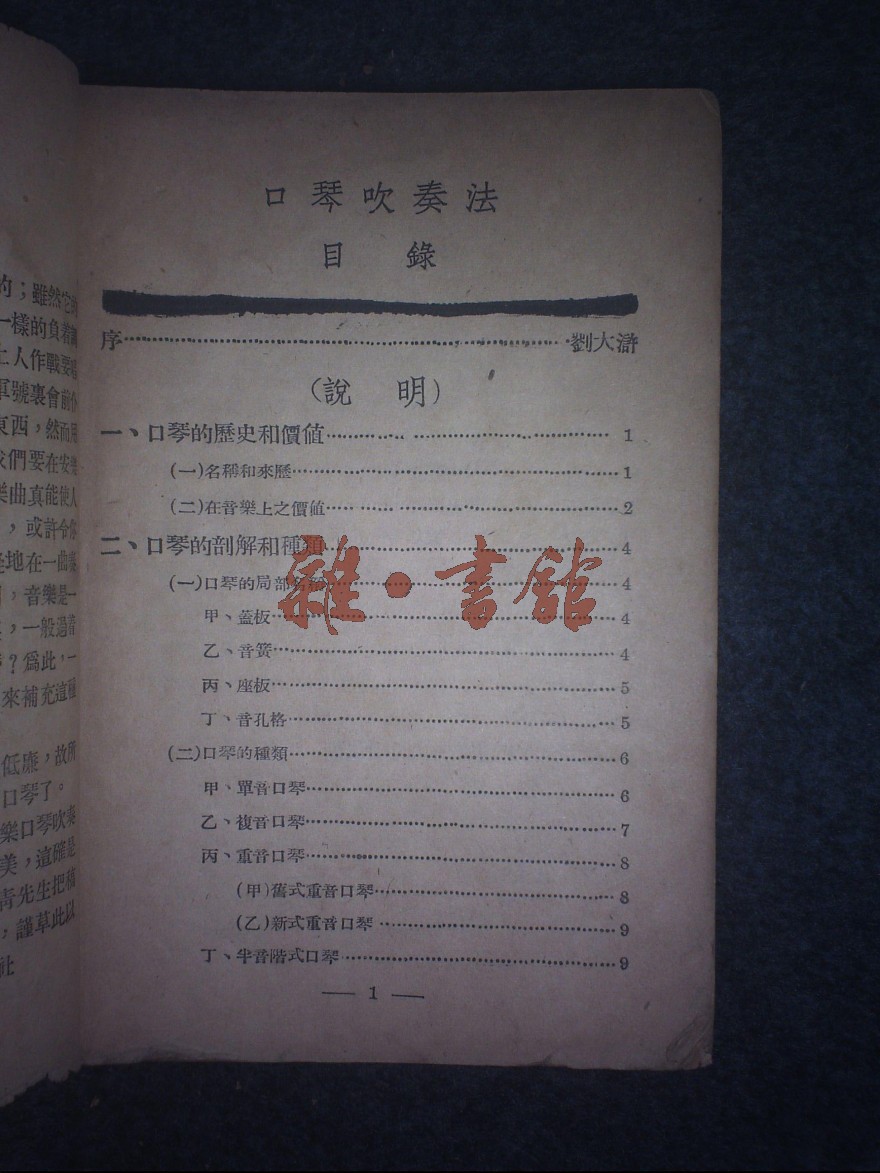 口琴吹奏法
目錄
序 劉大滸
(說 明)
一、口琴的歷史和價值 1
(一)名稱和來歷 1
(二)在音樂上之價值 2
二、口琴的剖解和種類 4
(一)口琴的局部名稱 4
甲、蓋板 4
乙、音簧 4
丙、座板 5
丁、音孔格 5
(二)口琴的種類 6
甲、單音口琴 6
乙、複音口琴 7
丙、重音口琴 8
(甲)舊式重音口琴 8
(乙)新式重音口琴 9
丁、半音階式口琴 9
— 1 —
雜·書館
的；雖然它
一樣的負着
工人作戰要
軍號裏會前
東西，然而用
我們要在安
樂曲真能使人
，或許令
地在一曲
，音樂是一
，一般過
？爲此，一
來補充這種
低廉，故所
口琴了。
樂口琴吹奏
美，這確是
青先生把稿
，謹草此以
社